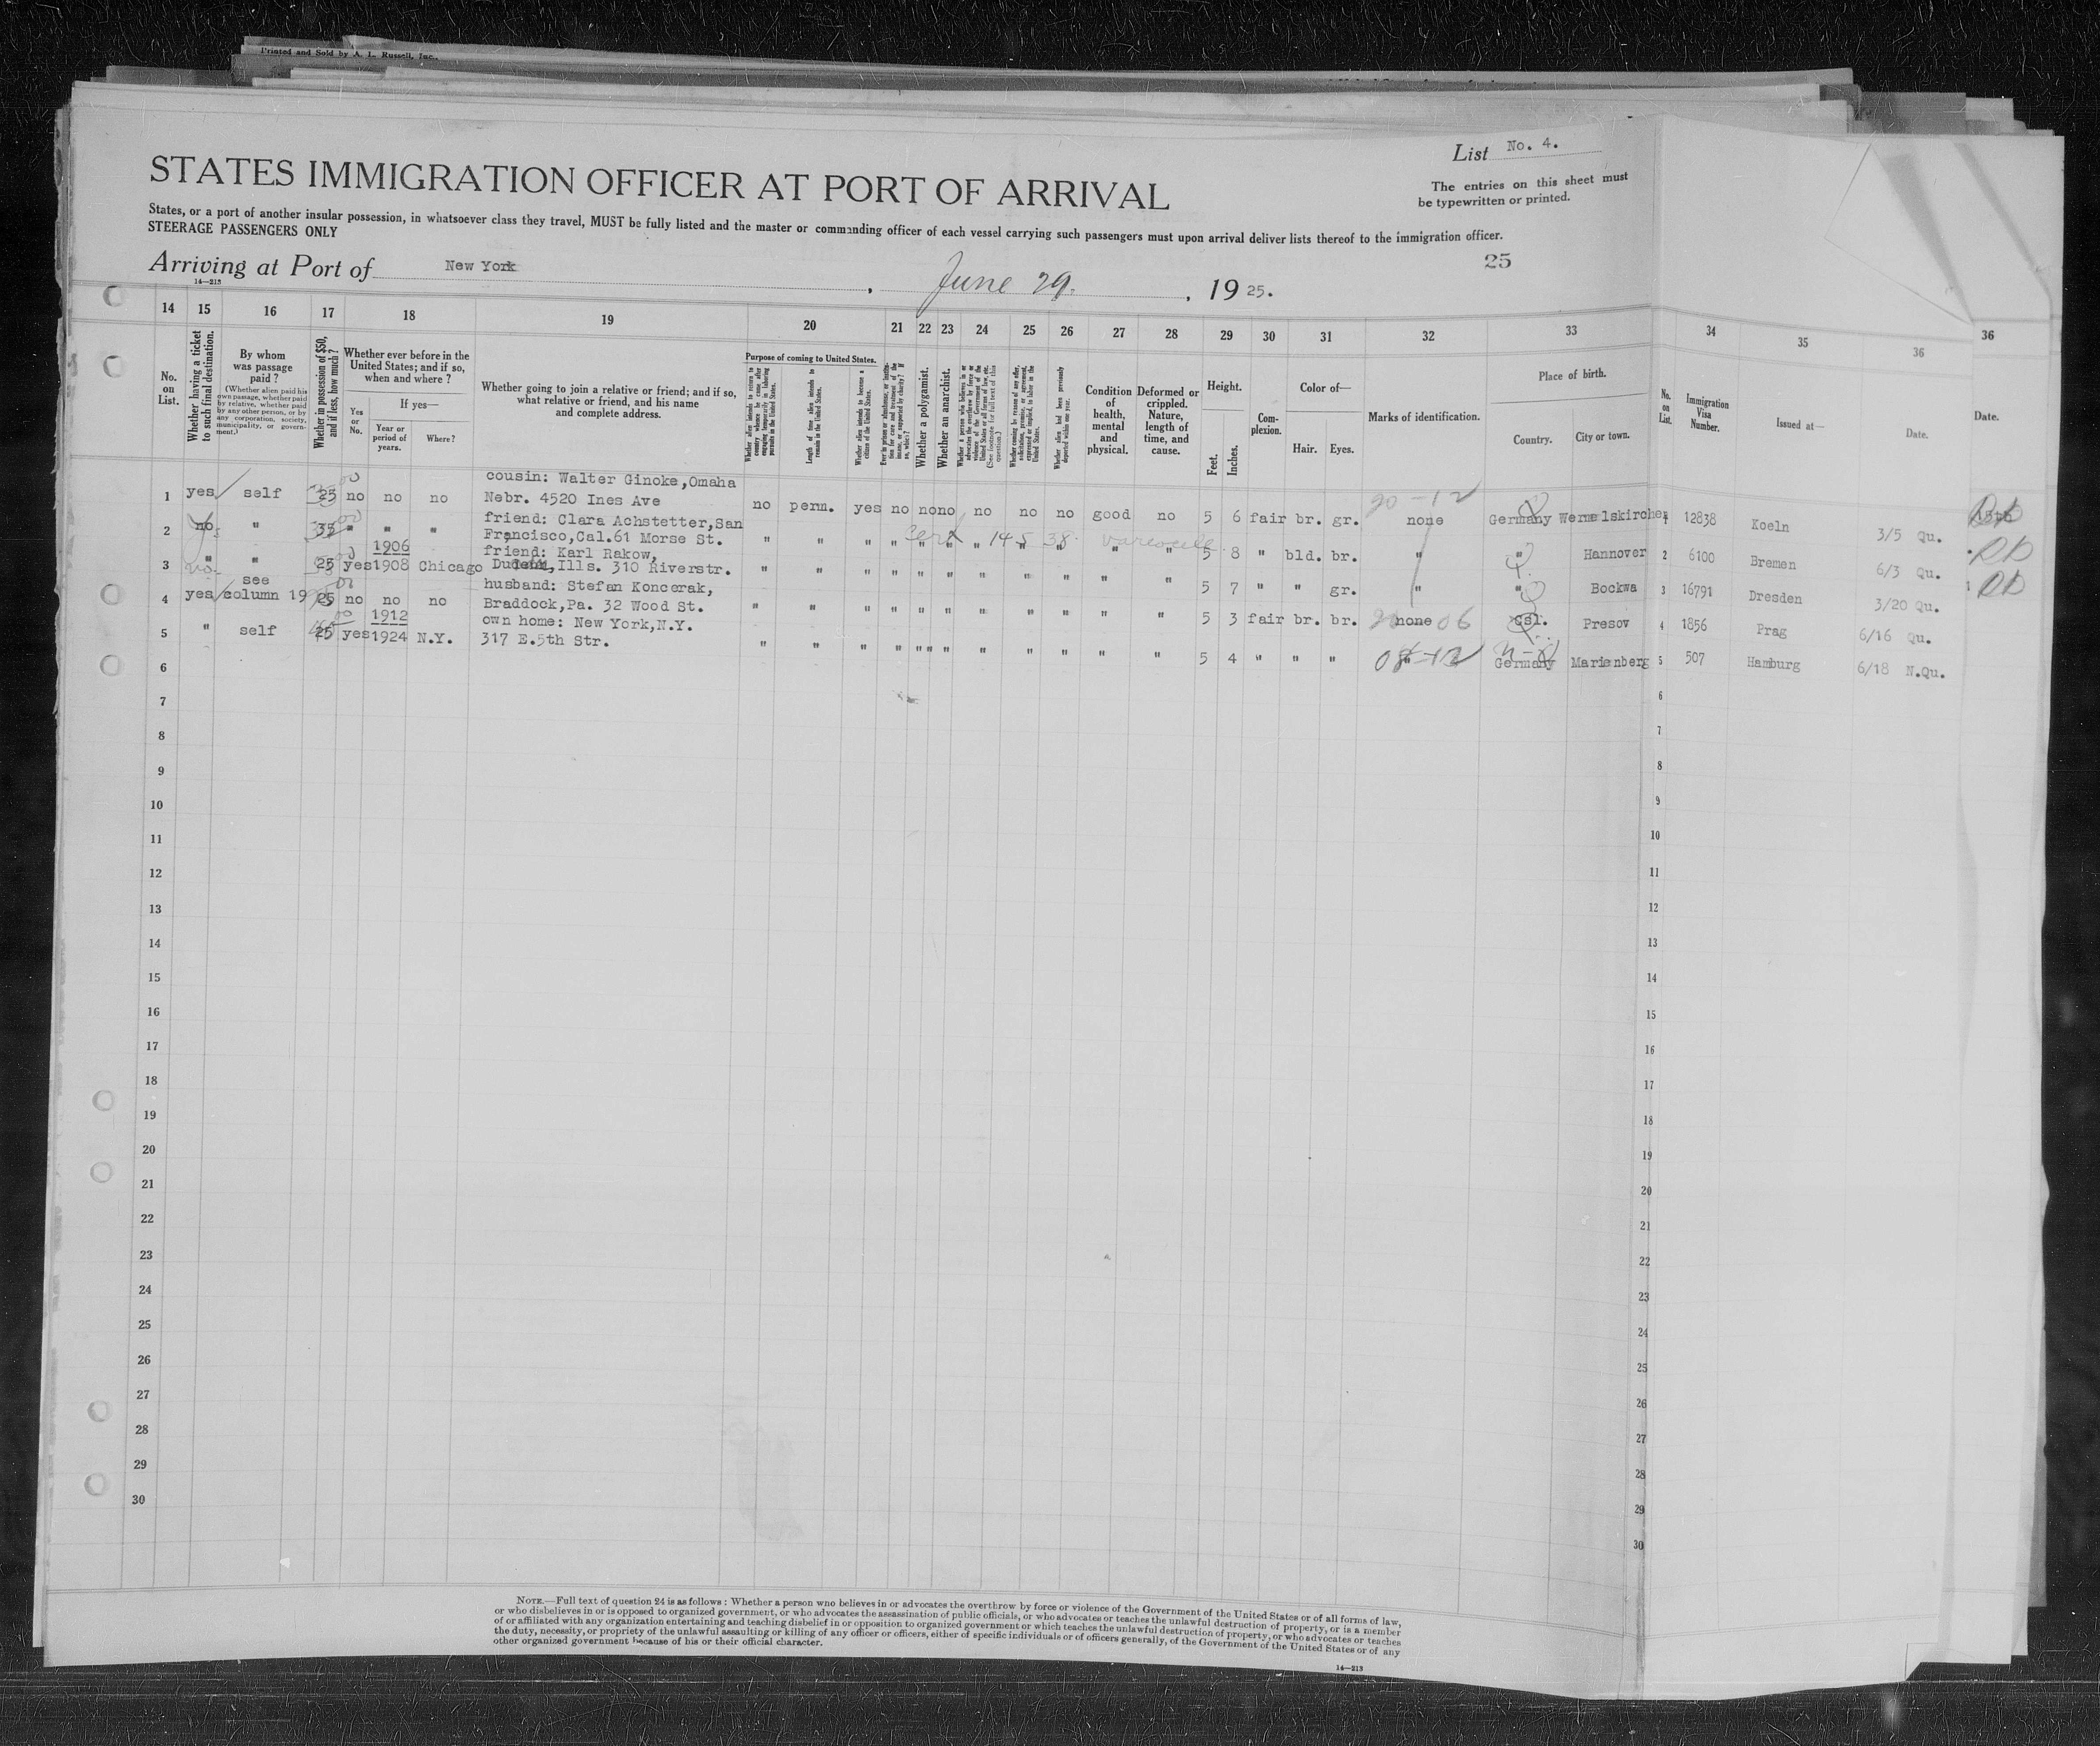 Printed and Sold by A. L. Russell, Inc.
List No. 4.
STATES IMMIGRATION OFFICER AT PORT OF ARRIVAL
The entries on this sheet must
be typewritten or printed.
States, or a port of another insular possession, in whatsoever class they travel, MUST be fully listed and the master or commanding officer of each vessel carrying such passengers must upon arrival deliver lists thereof to the immigration officer.
STEERAGE PASSENGERS ONLY
25
Arriving at Port of New York, June 29, 1925.
14—213
14 15 16 17 18 19 20 21 22 23 24 25 26 27 28 29 30 31 32 33 34 35 36 36
No. on List.
Whether having a ticket to such final destination.
By whom was passage paid?
(Whether alien paid his own passage, whether paid by relative, whether paid by any other person, or by any corporation, society, municipality, or government.)
Whether in possession of $50, and if less, how much?
Whether ever before in the United States; and if so, when and where?
Yes or No.
If yes—
Year or period of years.
Where?
Whether going to join a relative or friend; and if so, what relative or friend, and his name and complete address.
Purpose of coming to United States.
Whether alien intends to return to country whence he came after engaging temporarily in laboring pursuits in the United States.
Length of time alien intends to remain in the United States.
Whether alien intends to become a citizen of the United States.
Ever in prison or almshouse, or institution for care and treatment of the insane, or supported by charity? If so, which?
Whether a polygamist.
Whether an anarchist.
Whether a person who believes in or advocates the overthrow by force or violence of the Government of the United States or all forms of law, etc. (See footnote for full text of this question.)
Whether coming by reason of any offer, solicitation, promise, or agreement, expressed or implied, to labor in the United States.
Whether alien had been previously deported within one year.
Condition of health, mental and physical.
Deformed or crippled. Nature, length of time, and cause.
Height.
Feet. Inches.
Complexion.
Color of—
Hair. Eyes.
Marks of identification.
Place of birth.
Country. City or town.
No. on List.
Immigration Visa Number.
Issued at—
Date.
Date.
1 yes self 25 no no no cousin: Walter Ginoke, Omaha
Nebr. 4520 Ines Ave no perm. yes no no no no no no good no 5 6 fair br. gr. none Germany Wermelskirchen 1 12838 Koeln 3/5 Qu.
20-12
2 no " 35 " " " friend: Clara Achstetter, San
Francisco, Cal. 61 Morse St. " " " " " " " " " " " 5 8 " bld. br. " " Hannover 2 6100 Bremen 6/3 Qu.
yes
3 " " 25 yes 1906
1908 Chicago friend: Karl Rakow,
Ills. 310 Riverstr. " " " " " " " " " " " 5 7 " " gr. " " Bockwa 3 16791 Dresden 3/20 Qu.
no
4 yes see
column 19 25 no no no husband: Stefan Koncerak,
Braddock, Pa. 32 Wood St. " " " " " " " " " " " 5 3 fair br. br. none Csl. Presov 4 1856 Prag 6/16 Qu.
5 " self 25 yes 1912
1924 N.Y. own home: New York, N.Y.
317 E. 5th Str. " " " " " " " " " " " 5 4 " " " " Germany Marienberg 5 507 Hamburg 6/18 N.Qu.
6 6
7 7
8 8
9 9
10 10
11 11
12 12
13 13
14 14
15 15
16 16
17 17
18 18
19 19
20 20
21 21
22 22
23 23
24 24
25 25
26 26
27 27
28 28
29 29
30 30
NOTE.—Full text of question 24 is as follows: Whether a person who believes in or advocates the overthrow by force or violence of the Government of the United States or of all forms of law,
or who disbelieves in or is opposed to organized government, or who advocates the assassination of public officials, or who advocates or teaches the unlawful destruction of property, or is a member
of or affiliated with any organization entertaining and teaching disbelief in or opposition to organized government or which teaches the unlawful destruction of property, or who advocates or teaches
the duty, necessity, or propriety of the unlawful assaulting or killing of any officer or officers, either of specific individuals or of officers generally, of the Government of the United States or of any
other organized government because of his or their official character.
14—213